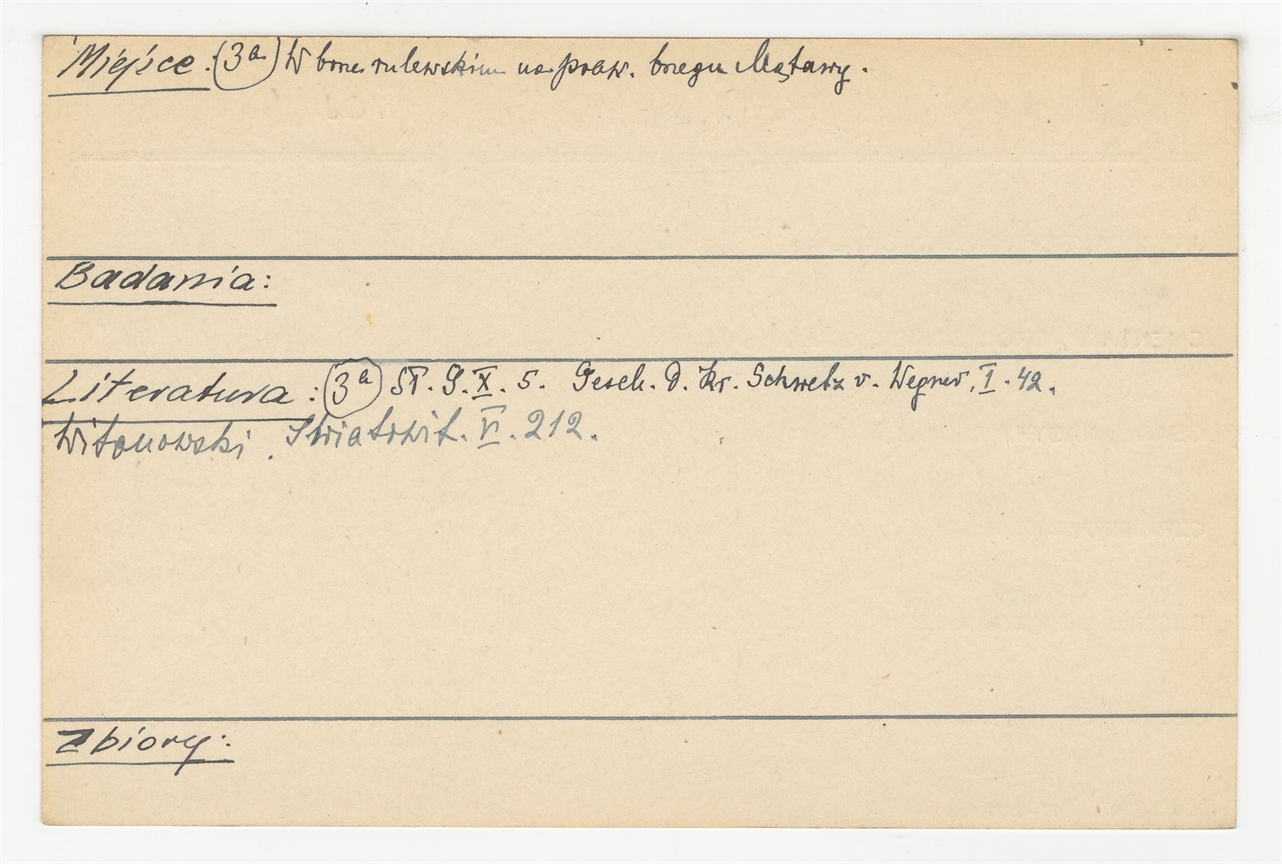 Miejsce: (3a) W borze rulewskim na praw. brzegu Mątawy.
Badania:
Literatura: (3a) Sł. G. X. 5. Gesch. D. Kr. Schwetz v. Wegner, I. 42.
Witanowski. Światowit. V. 212.
Zbiory: